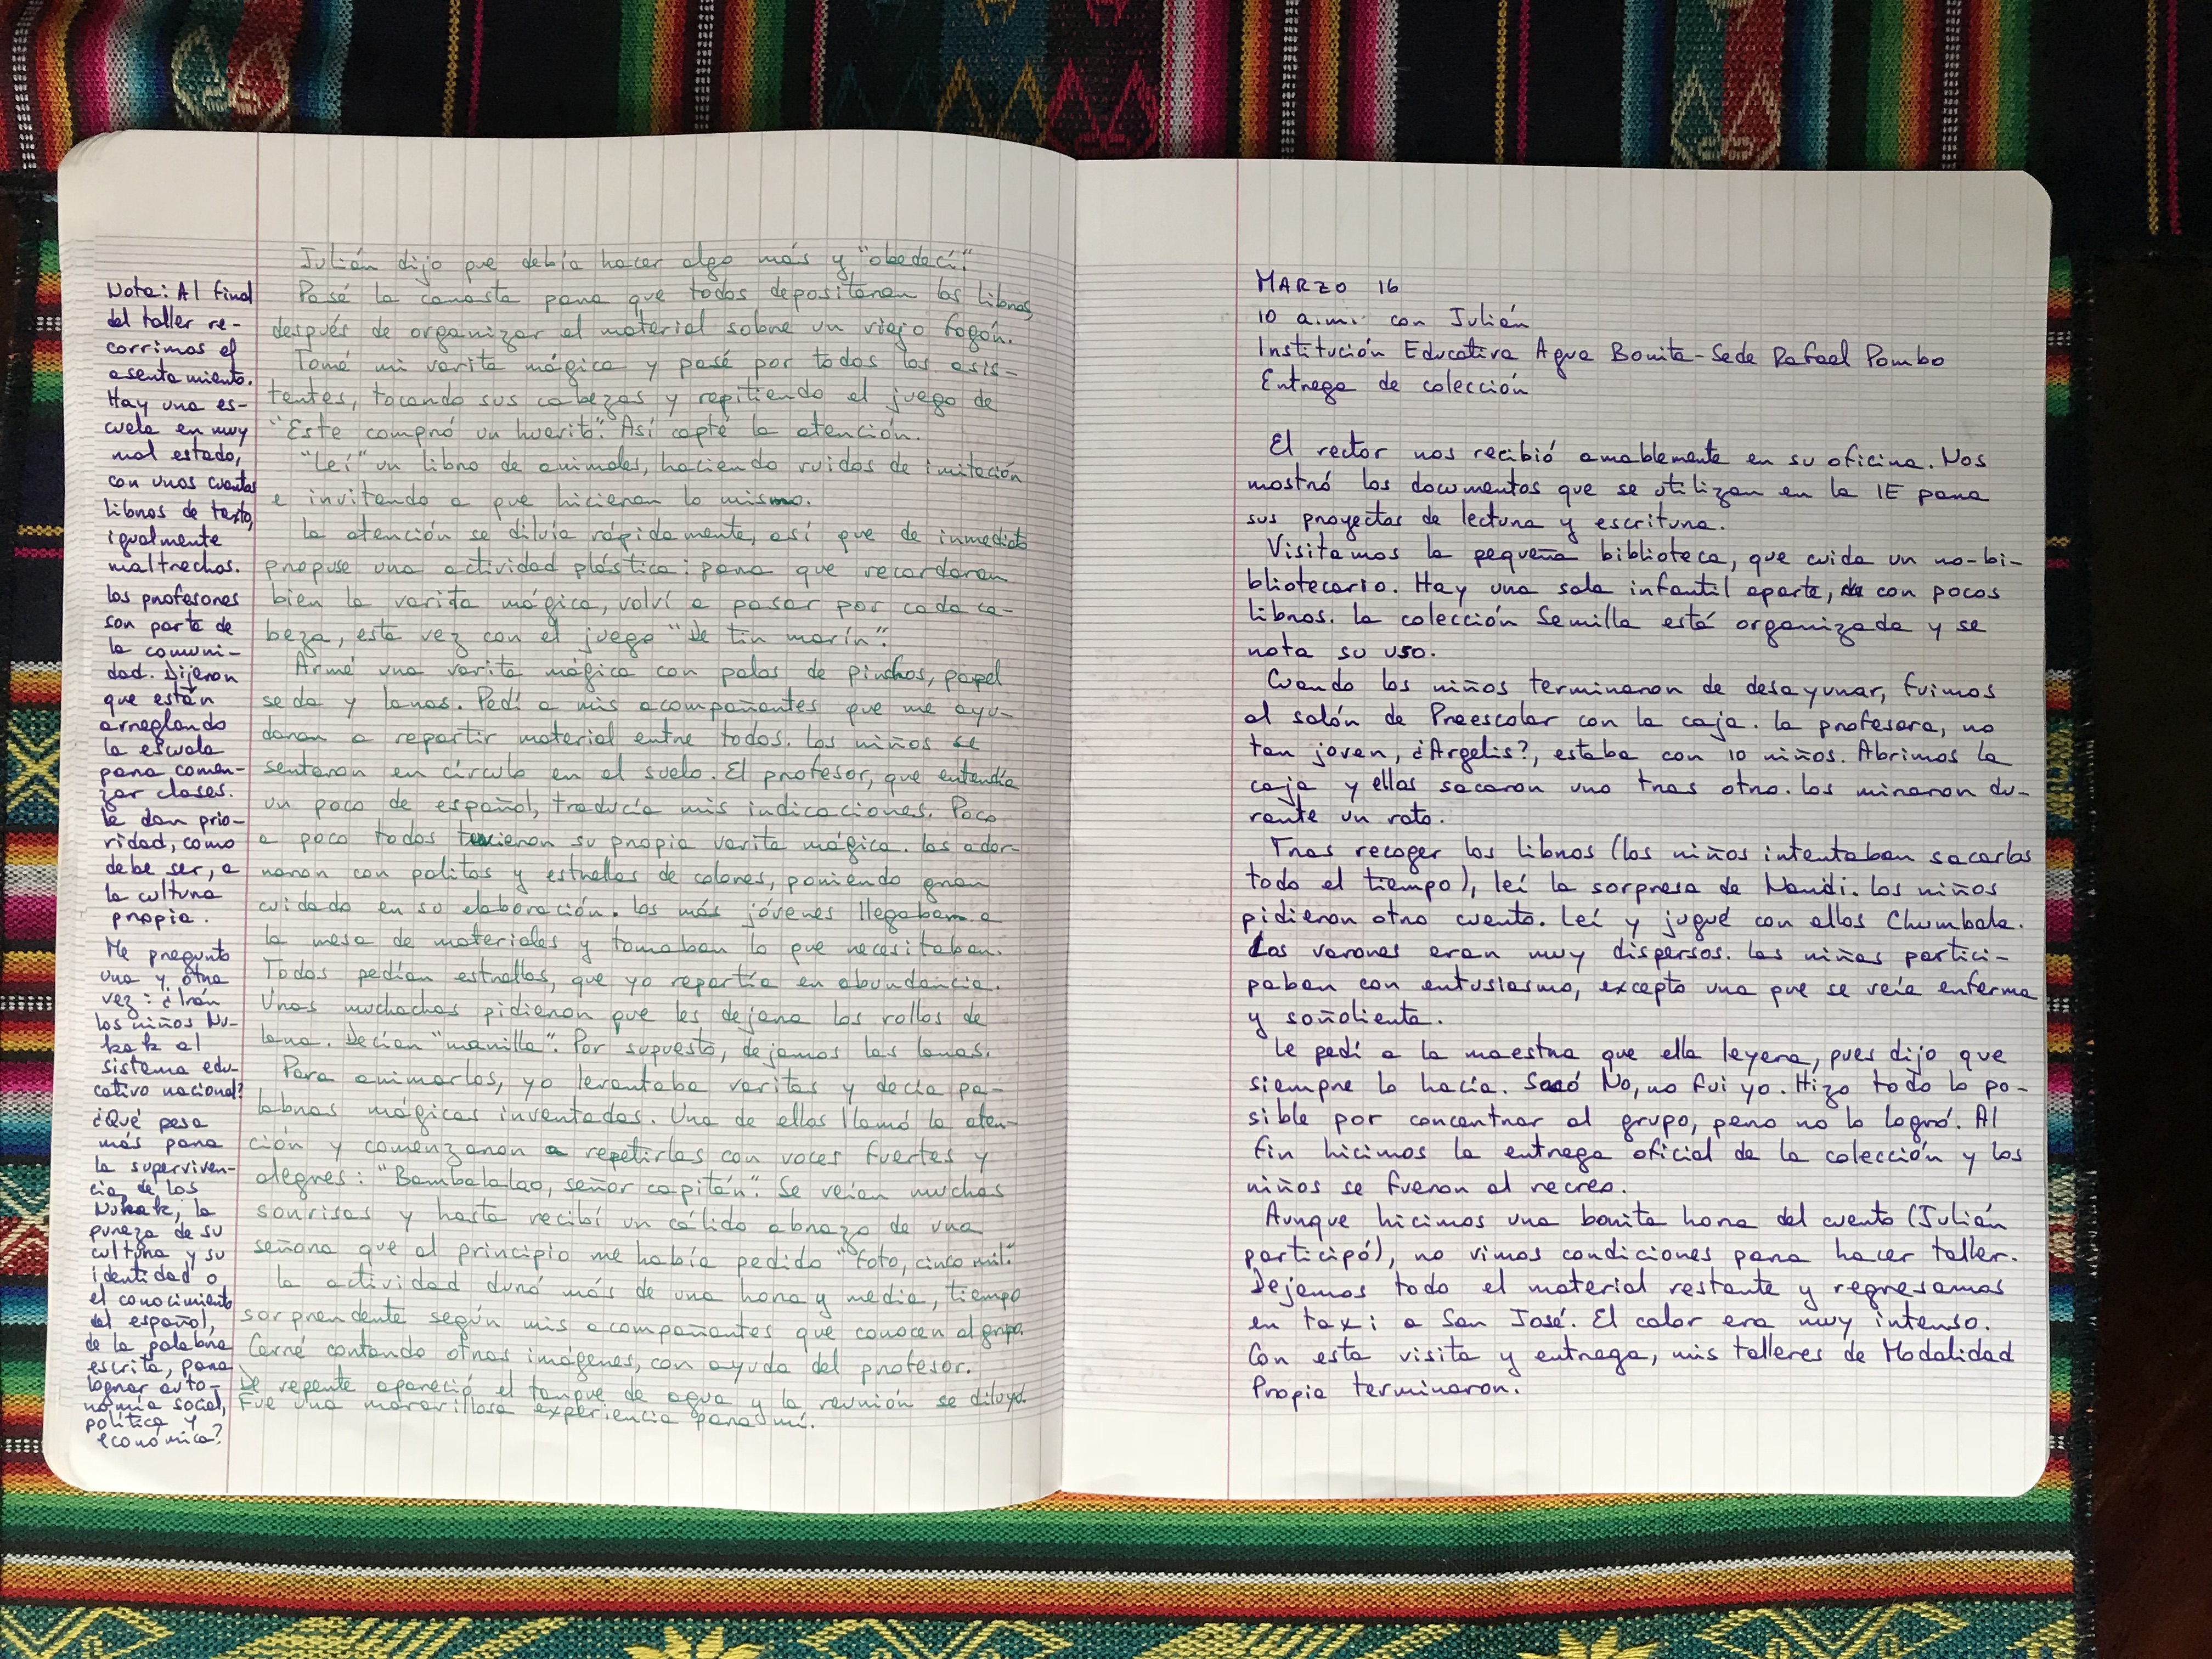 Nota: Al final
del taller re-
corrimos el
asentamiento.
Hay una es-
cuela en muy
mal estado,
con unos cuantos
libros de texto,
igualmente
maltrechos.
Los profesores
son parte de
la comuni-
dad. Dijeron
que están
arreglando
la escuela
para comen-
zar clases.
Le dan prio-
ridad, como
debe ser, a
la cultura
propia.
Me pregunto
una y otra
vez: ¿Irán
los niños Nu-
kak al
sistema edu-
cativo nacional?
¿Qué pesa
más para
la superviven-
cia de los
Nukak, la
pureza de su
cultura y su
identidad o
el conocimiento
del español,
de la palabra
escrita, para
lograr auto-
nomía social,
política y
económica?
Julián dijo que debía hacer algo más y "obedecí".
Pasé la canasta para que todos depositaran los libros,
después de organizar el material sobre un viejo fogón.
Tomé mi varita mágica y pasé por todos los asis-
tentes, tocando sus cabezas y repitiendo el juego de
"Este compró un huevito". Así capté la atención.
"Leí" un libro de animales, haciendo ruidos de imitación
e invitando a que hicieran lo mismo.
La atención se diluía rápidamente, así que de inmediato
propuse una actividad plástica: para que recordaran
bien la varita mágica, volví a pasar por cada ca-
beza, esta vez con el juego "De tin marín".
Armé una varita mágica con palos de pinchos, papel
seda y lanas. Pedí a mis acompañantes que me ayu-
daran a repartir material entre todos. Los niños se
sentaron en círculo en el suelo. El profesor, que entendía
un poco de español, traducía mis indicaciones. Poco
a poco todos tuvieron su propia varita mágica. Las ador-
naron con palitos y estrellas de colores, poniendo gran
cuidado en su elaboración. Los más jóvenes llegaban a
la mesa de materiales y tomaban lo que necesitaban.
Todos pedían estrellas, que yo repartía en abundancia.
Unas muchachas pidieron que les dejara los rollos de
lana. Decían "manilla". Por supuesto, dejamos las lanas.
Para animarlos, yo levantaba varitas y decía pa-
labras mágicas inventadas. Una de ellas llamó la aten-
ción y comenzaron a repetirlas con voces fuertes y
alegres: "Bambalalao, señor capitán". Se veían muchas
sonrisas y hasta recibí un cálido abrazo de una
señora que al principio me había pedido "foto, cinco mil".
La actividad duró más de una hora y media, tiempo
sorprendente según mis acompañantes que conocen al grupo.
Cerré contando otras imágenes, con ayuda del profesor.
De repente apareció el tanque de agua y la reunión se diluyó.
Fue una maravillosa experiencia para mí.
MARZO 16
10 a.m. con Julián
Institución Educativa Agua Bonita - Sede Rafael Pombo
Entrega de colección
El rector nos recibió amablemente en su oficina. Nos
mostró los documentos que se utilizan en la IE para
sus proyectos de lectura y escritura.
Visitamos la pequeña biblioteca, que cuida un no-bi-
bliotecario. Hay una sala infantil aparte, con pocos
libros. La colección Semilla está organizada y se
nota su uso.
Cuando los niños terminaron de desayunar, fuimos
al salón de Preescolar con la caja. La profesora, no
tan joven, ¿Argelis?, estaba con 10 niños. Abrimos la
caja y ellos sacaron uno tras otro. Los miraron du-
rante un rato.
Tras recoger los libros (los niños intentaban sacarlos
todo el tiempo), leí la sorpresa de Nandi. Los niños
pidieron otro cuento. Leí y jugué con ellos Chumbala.
Los varones eran muy dispersos. Las niñas partici-
paban con entusiasmo, excepto una que se veía enferma
y soñolienta.
Le pedí a la maestra que ella leyera, pues dijo que
siempre lo hacía. Sacó No, no fui yo. Hizo todo lo po-
sible por concentrar al grupo, pero no lo logró. Al
fin hicimos la entrega oficial de la colección y los
niños se fueron al recreo.
Aunque hicimos una bonita hora del cuento (Julián
participó), no vimos condiciones para hacer taller.
Dejamos todo el material restante y regresamos
en taxi a San José. El calor era muy intenso.
Con esta visita y entrega, mis talleres de Modalidad
Propia terminaron.